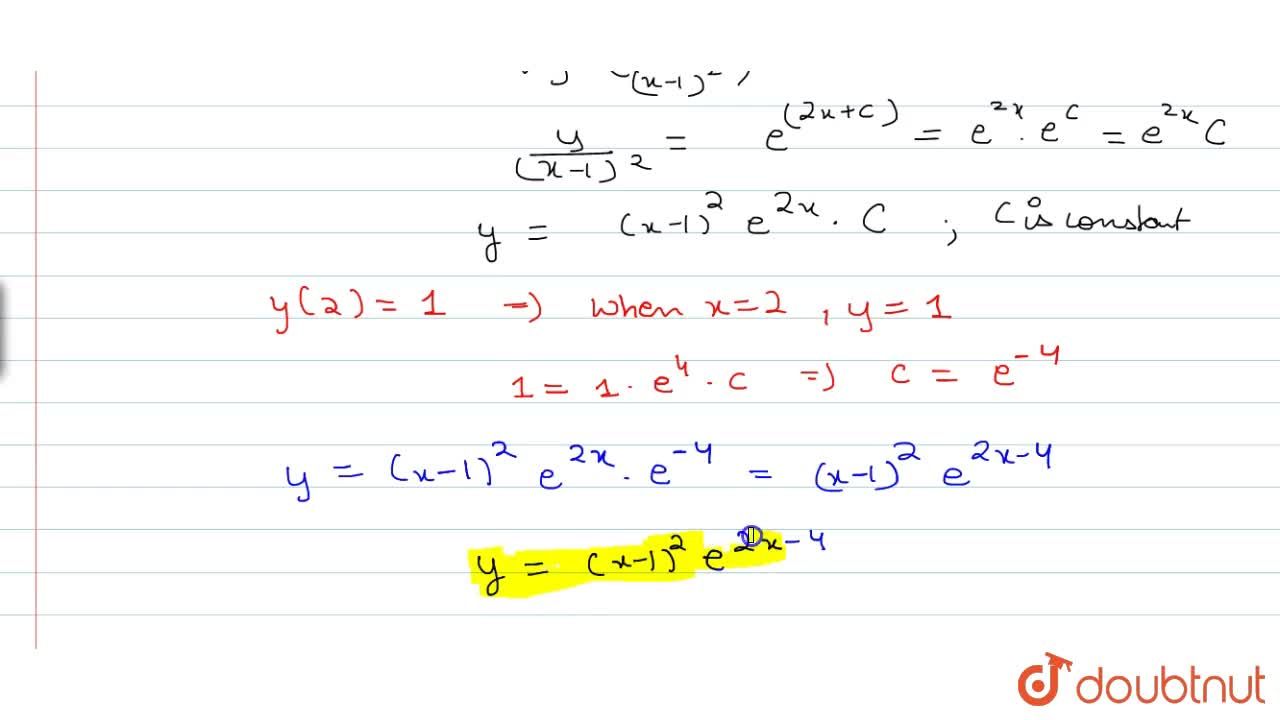 (x-1)²
y/(x-1)² = e^(2x+c) = e^2x · e^c = e^2x C
y = (x-1)² e^2x · C ; C is constant
y(2) = 1 => when x=2 , y=1
1 = 1 · e^4 · c => c = e^-4
y = (x-1)² e^2x · e^-4 = (x-1)² e^2x-4
y = (x-1)² e^2x-4
doubtnut